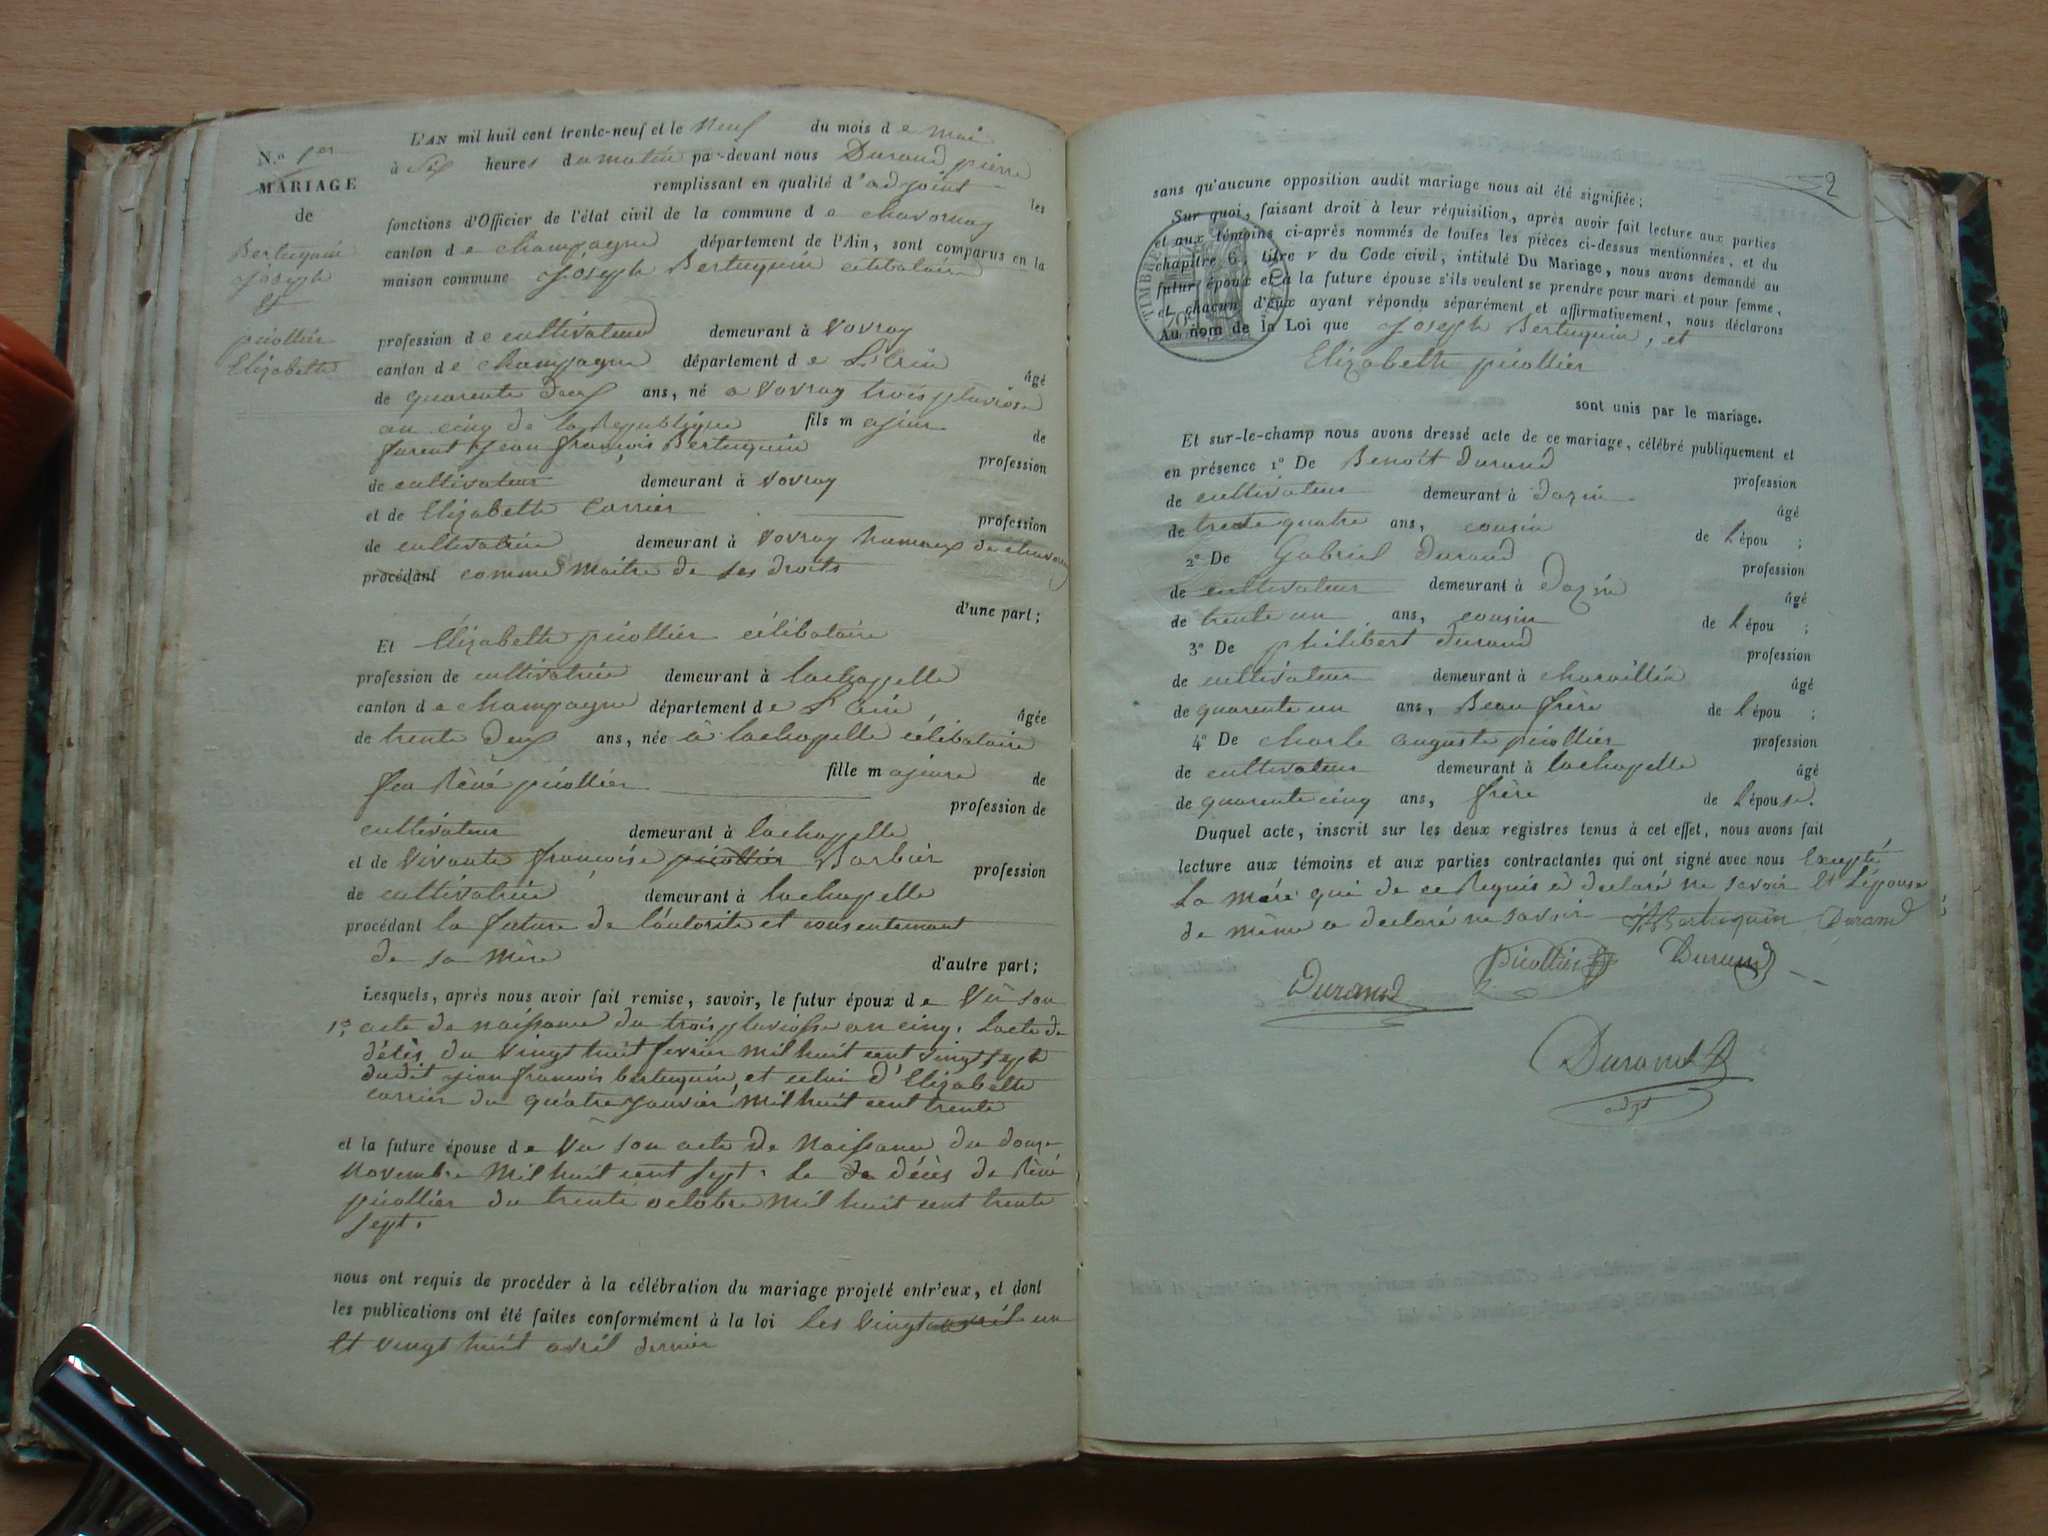 N.º 1er
MARIAGE
de
Bertuquin
Joseph
Et
picollier
Elizabeth
L'AN mil huit cent trente-neuf et le Neuf du mois de mai
à Six heures du matin par-devant nous Durand pierre
remplissant en qualité d'adjoint les
fonctions d'Officier de l'état civil de la commune de chavornay
canton de champagne département de l'Ain, sont comparus en la
maison commune Joseph Bertuquin célibataire
profession de cultivateur demeurant à Vovray
canton de champagne département de L'ain âgé
de quarente deux ans, né a Vovray trois pluviose
an cinq de la Republique fils majeur de
furent Jean françois Bertuquin profession
de cultivateur demeurant à Vovray
et de Elizabeth Carrier profession
de cultivatrice demeurant à Vovray hameaux de chavornay
procédant comme maitre de ses droits
d'une part;
Et Elizabeth picollier célibataire
profession de cultivatrice demeurant à lachapelle
canton de champagne département de L'ain âgée
de trente deux ans, née à lachapelle célibataire
fille majeure de
feu Réné picollier profession de
cultivateur demeurant à lachapelle
et de Vivante françoise picollier Barbier profession
de cultivatrice demeurant à lachapelle
procédant la future de l'autorité et consentement
de sa mère d'autre part;
Lesquels, après nous avoir fait remise, savoir, le futur époux de Vû son
1º acte de naissance du trois pluviosse an cinq. Lacte de
décès du vingt huit fevrier mil huit cent vingt sept
dudit jean francois bertuquin, et celui d'Elizabette
carrier du quatre janvier mil huit cent trente
et la future épouse de Vu son acte de Naissance du douze
Novembre mil huit cent sept. Le de décès de Réné
picollier du trente octobre mil huit cent trente
sept.
nous ont requis de procéder à la célébration du mariage projeté entr'eux, et dont
les publications ont été faites conformément à la loi les vingt avril un
Et vingt huit avril dernier
2
sans qu'aucune opposition audit mariage nous ait été signifiée;
Sur quoi, faisant droit à leur réquisition, après avoir fait lecture aux parties
et aux témoins ci-après nommés de toutes les pièces ci-dessus mentionnées, et du
chapitre 6, titre v du Code civil, intitulé Du Mariage, nous avons demandé au
futur époux et à la future épouse s'ils veulent se prendre pour mari et pour femme,
et chacun d'eux ayant répondu séparément et affirmativement, nous déclarons
Au nom de la Loi que Joseph Bertuquin, et
Elizabeth picollier
sont unis par le mariage.
TIMBRE
Et sur-le-champ nous avons dressé acte de ce mariage, célébré publiquement et
en présence 1º De Benoit durand profession
de cultivateur demeurant à dazin âgé
de trente quatre ans, cousin de l'épou ;
2º De Gabriel durand profession
de cultivateur demeurant à Dazin âgé
de trente un ans, cousin de l'épou ;
3º De philibert durand profession
de cultivateur demeurant à charaillin âgé
de quarente un ans, Beau frère de l'épou ;
4º De charle auguste picollier profession
de cultivateur demeurant à lachapelle âgé
de quarente cinq ans, frère de l'épouse.
Duquel acte, inscrit sur les deux registres tenus à cet effet, nous avons fait
lecture aux témoins et aux parties contractantes qui ont signé avec nous Excepté
La mère qui de ce Requis à declaré ne savoir Et L'épouse
de même a declaré ne savoir Bertuquin Durand
Picollier Durand
Durand
Durand
adjt